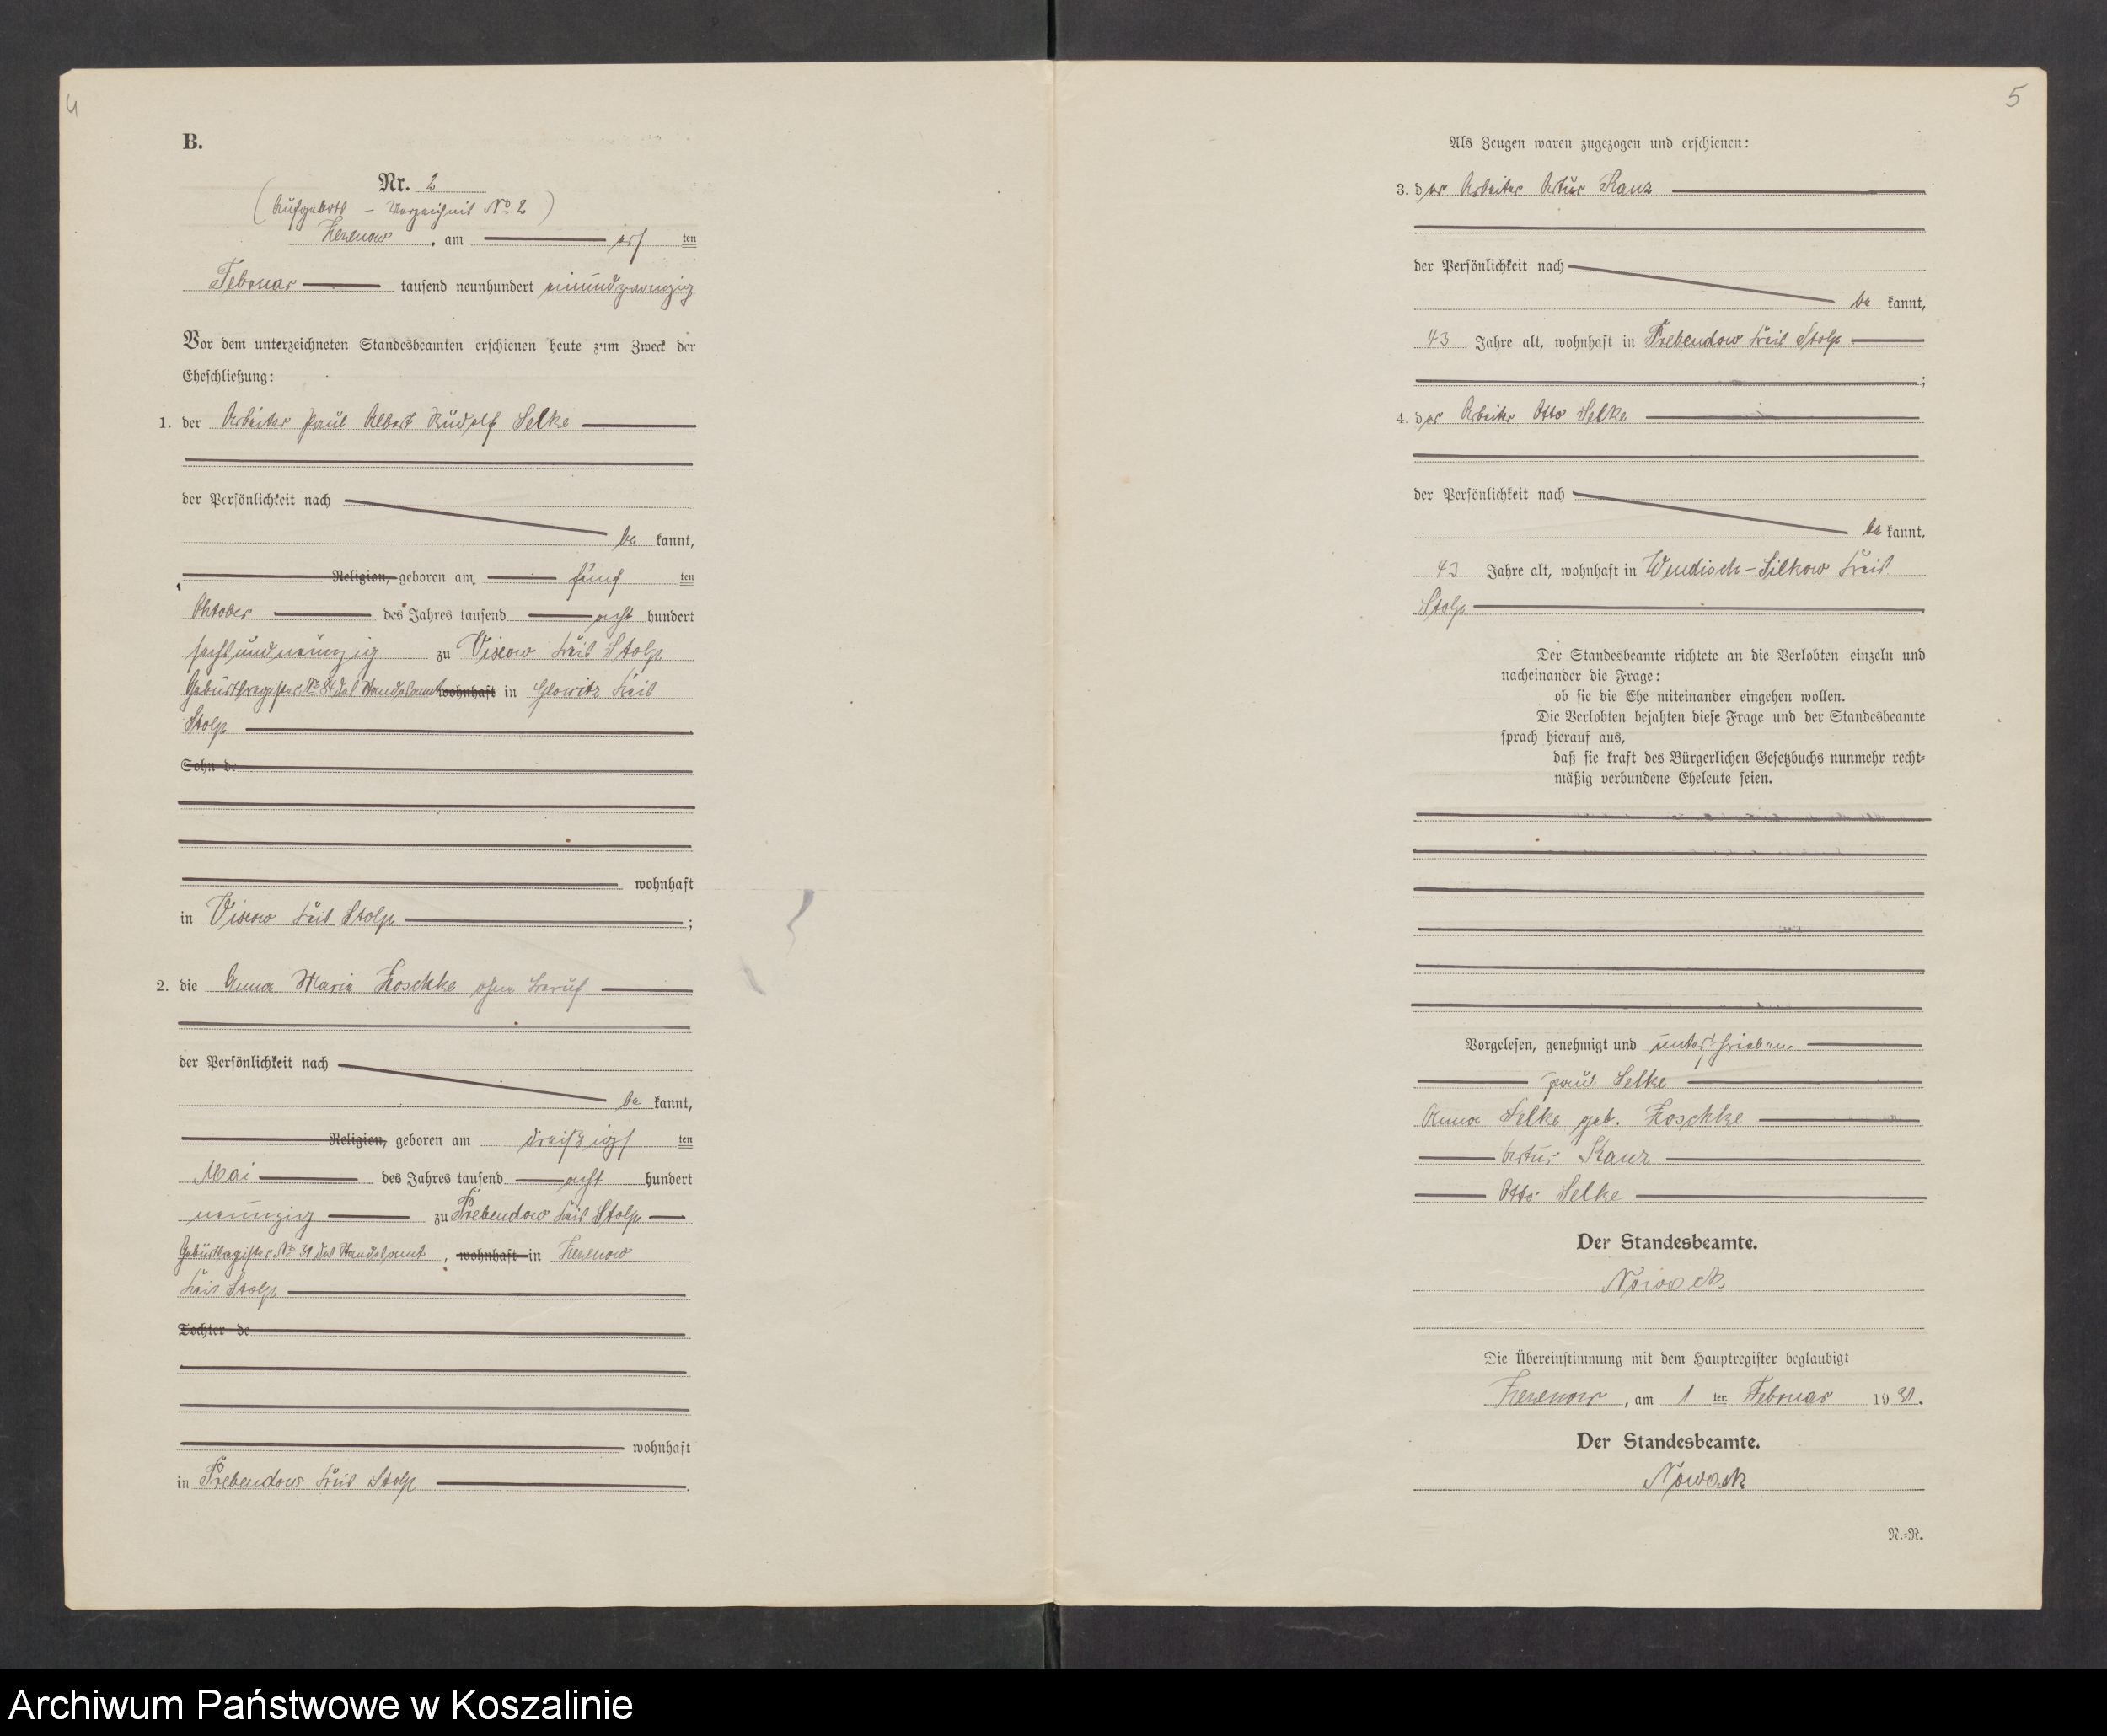 4
B.
Nr. 2
(Aufgebots-Verzeichnis No 2)
Zezenow, am erſ ten
Februar tauſend neunhundert einundzwanzig
Vor dem unterzeichneten Standesbeamten erſchienen heute zum Zweck der
Eheſchließung:
1. der Arbeiter Paul Albert Rudolf Selke
der Perſönlichkeit nach
be kannt,
Religion, geboren am fünf ten
Oktober des Jahres tauſend acht hundert
ſechsundneunzig zu Vixow Kreis Stolp
Geburtsregister No des Standesamt wohnhaft in Glowitz Kreis
Stolp
Sohn de
wohnhaft
in Vixow Kreis Stolp;
2. die Anna Maria Koschke ohne Beruf
der Perſönlichkeit nach
be kannt,
Religion, geboren am dreißigſ ten
Mai des Jahres tauſend acht hundert
neunzig zu Prebendow Kreis Stolp
Geburtsregister No 31 des Standesamt, wohnhaft in Zezenow
Kreis Stolp
Tochter de
wohnhaft
in Prebendow Kreis Stolp.
5
Als Zeugen waren zugezogen und erſchienen:
3. der Arbeiter Artur Kanz
der Perſönlichkeit nach
be kannt,
43 Jahre alt, wohnhaft in Prebendow Kreis Stolp
;
4. der Arbeiter Otto Selke
der Perſönlichkeit nach
be kannt,
43 Jahre alt, wohnhaft in Wendisch-Silkow Kreis
Stolp.
Der Standesbeamte richtete an die Verlobten einzeln und
nacheinander die Frage:
ob ſie die Ehe miteinander eingehen wollen.
Die Verlobten bejahten dieſe Frage und der Standesbeamte
ſprach hierauf aus,
daß ſie kraft des Bürgerlichen Geſetzbuchs nunmehr recht-
mäßig verbundene Eheleute ſeien.
Vorgeleſen, genehmigt und unterſchrieben
Paul Selke
Anna Selke geb. Koschke
Artur Kanz
Otto Selke
Der Standesbeamte.
Nowack
Die Übereinſtimmung mit dem Hauptregiſter beglaubigt
Zezenow, am 1 ten Februar 1921.
Der Standesbeamte.
Nowack
N.-R.
Archiwum Państwowe w Koszalinie